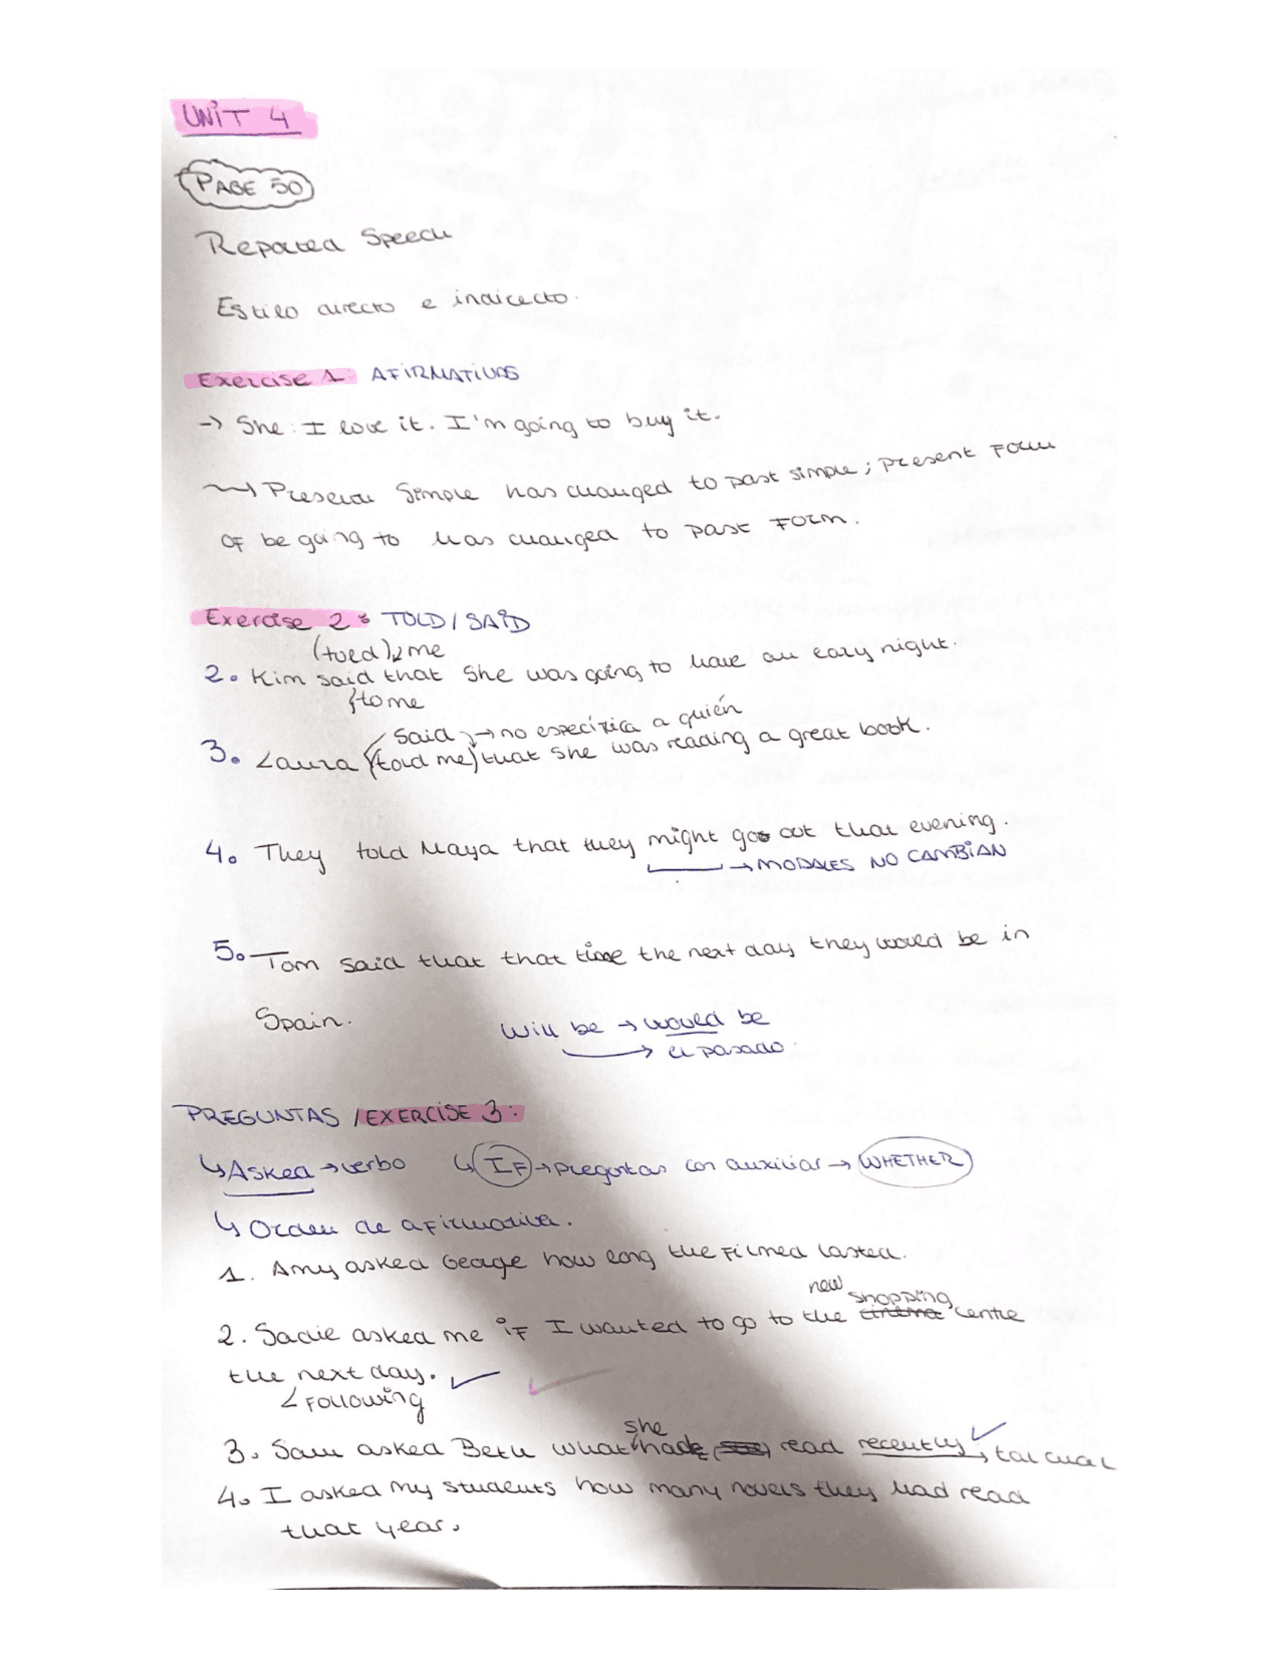 UNIT 4
PAGE 50
Reported Speech
Estilo directo e indirecto.
Exercise 1: AFIRMATIVAS
→ She: I love it. I'm going to buy it.
→ Present Simple has changed to past simple; present Form
OF be going to has changed to past Form.
Exercise 2: TOLD / SAID
(told) me
2. Kim said that she was going to have an early night.
to me
said → no especifica a quién
3. Laura (told me) that she was reading a great book.
4. They told Maya that they might go out that evening.
→ MODALES NO CAMBIAN
5. Tom said that that time the next day they would be in
Spain.
Will be → would be
→ el pasado
PREGUNTAS / EXERCISE 3:
↳ Asked → verbo ↳ IF → preguntas con auxiliar → WHETHER
↳ Orden de afirmativa.
1. Amy asked George how long the Filmed lasted.
new shopping
2. Sadie asked me iF I wanted to go to the cinema centre
the next day.
Following
she
3. Sam asked Beth what had read recently, tal cual
4. I asked my students how many novels they had read
that year.